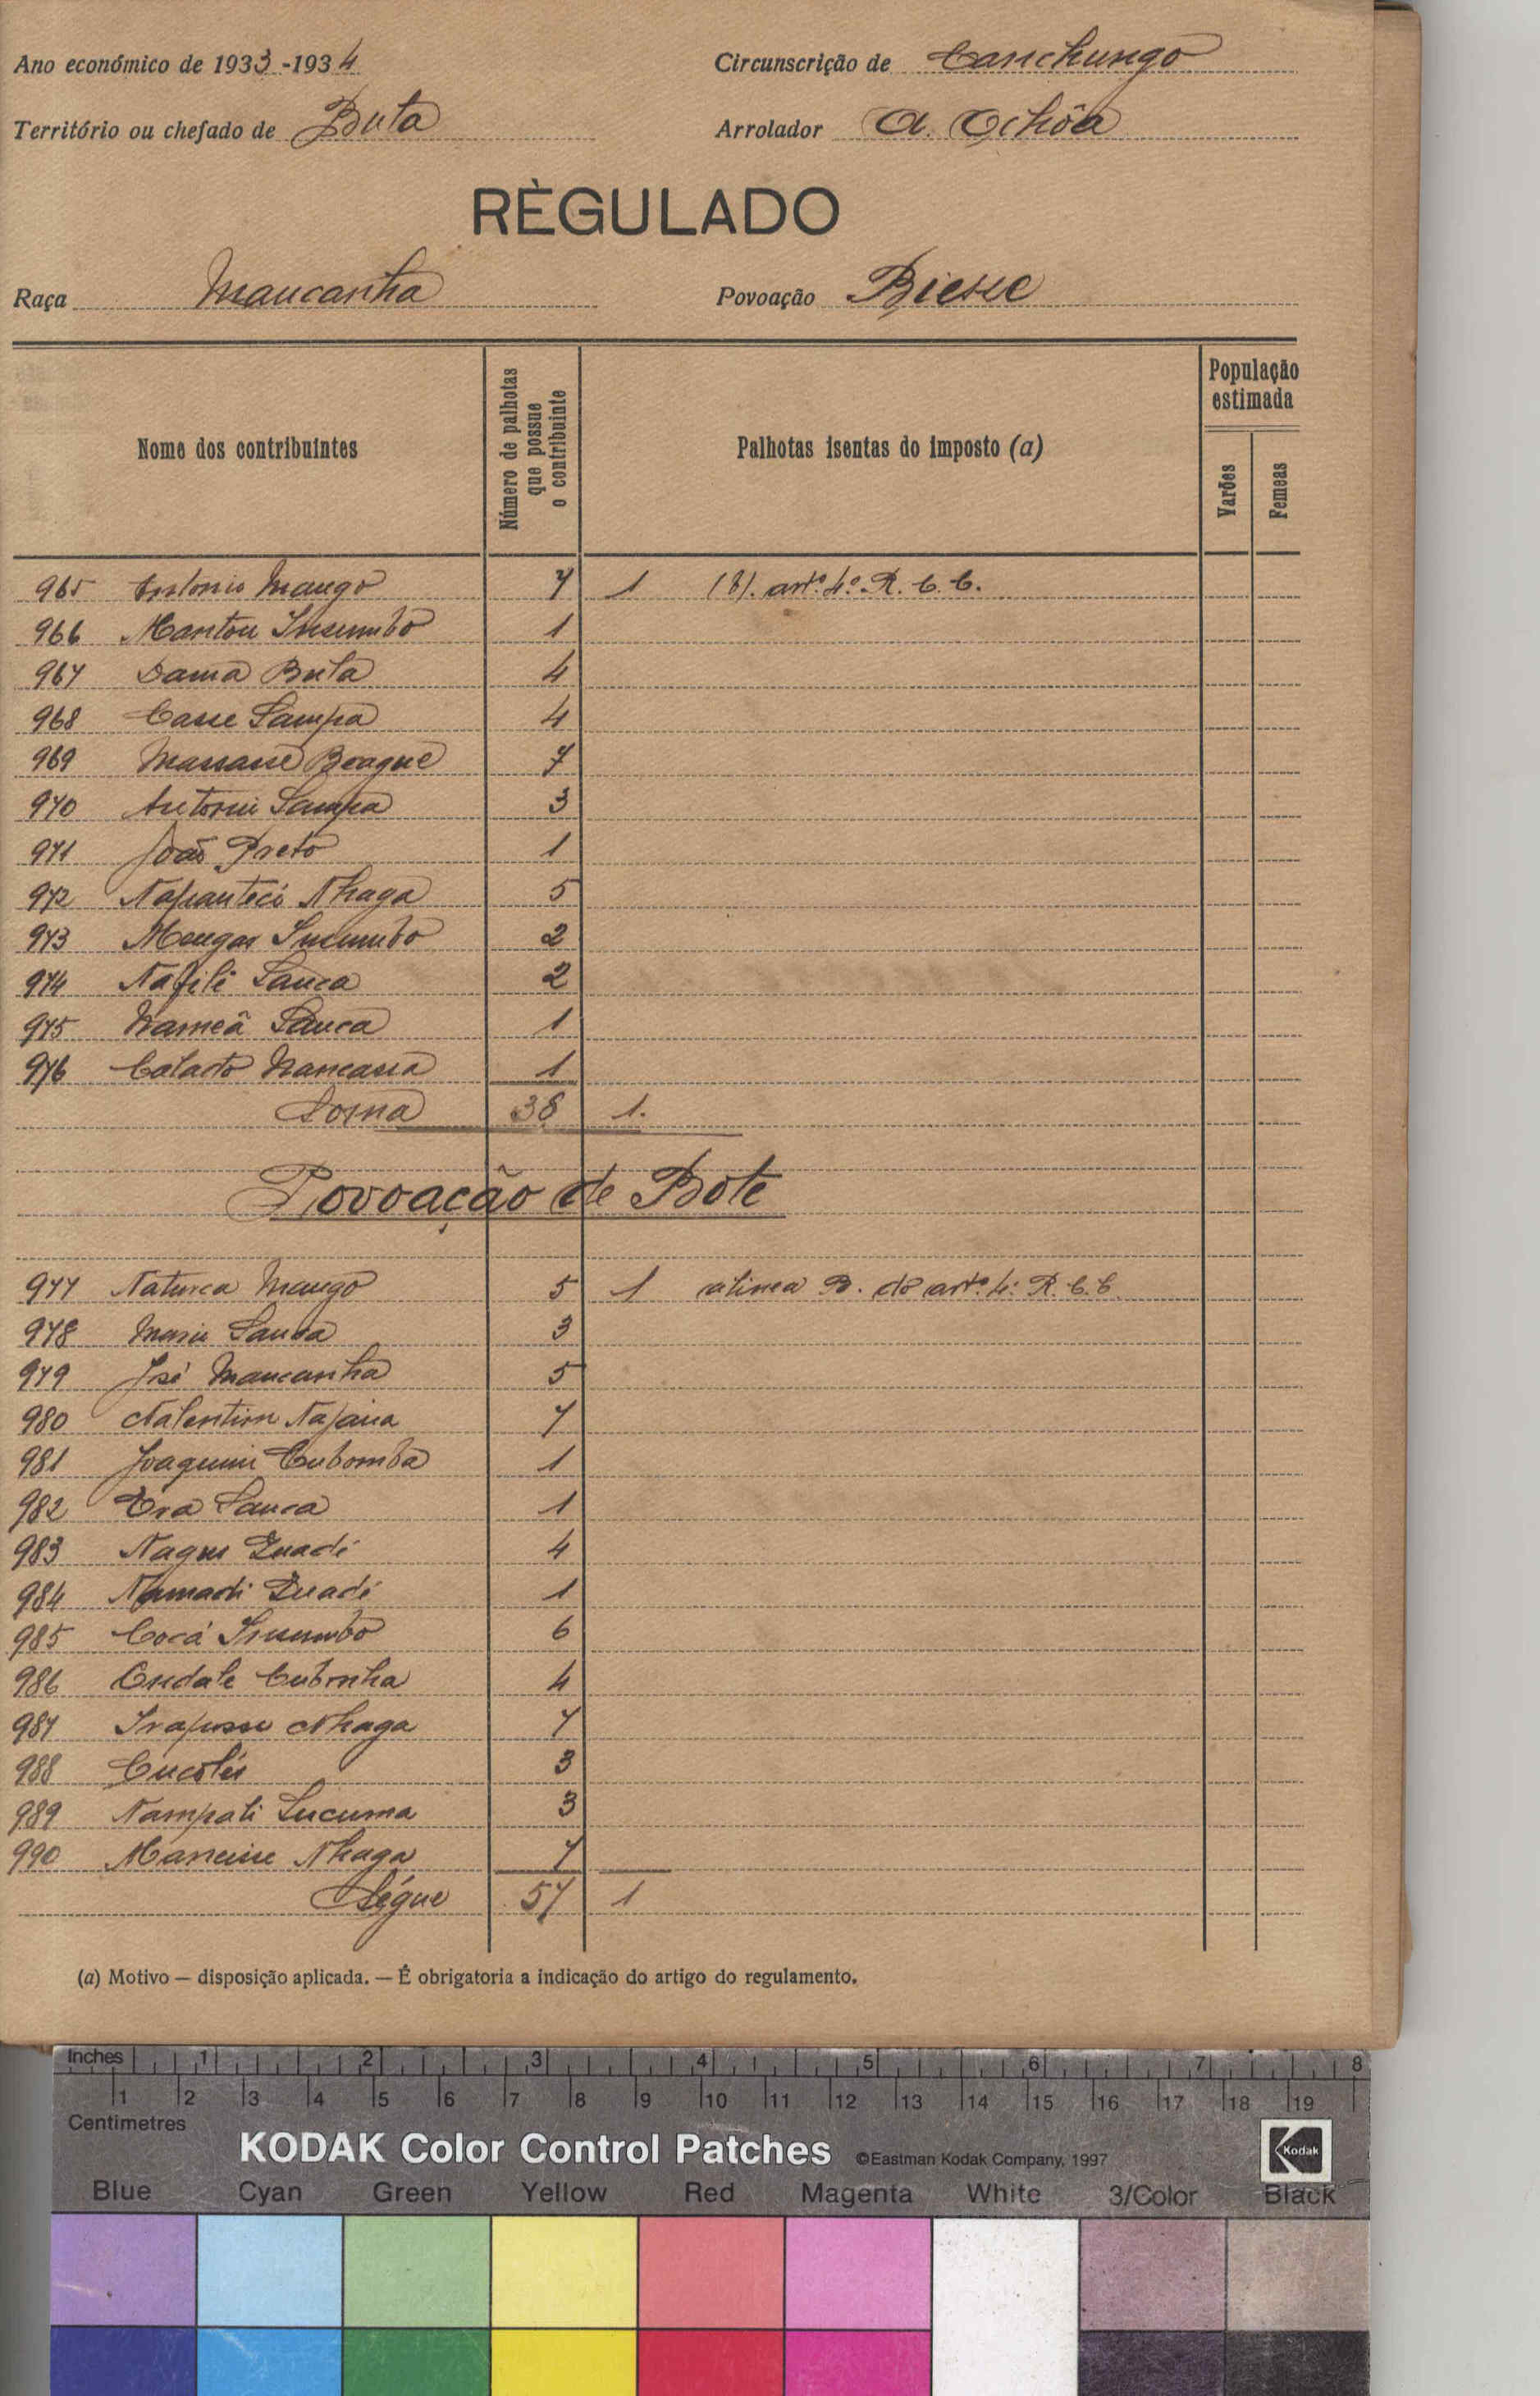 Ano económico de 1933-1934
Circunscrição de Canchungo
Território ou chefado de Buta
Arrolador A. Ochôa
RÈGULADO
Raça Mancanha
Povoação
Nome dos contribuintes
Número de palhotas que possue o contribuinte
Palhotas isentas do imposto (a)
População estimada
Varões
Femeas
965 Antonio Mango 7 1 (B). artº. 4º. R. C. C.
966 Insumbo 1
967 Dama Buta 4
968 Casse Sampa 4
969 7
970 Antonio Sampa 3
971 João Preto 1
972 Nhaga 5
973 Insumbo 2
974 Nafilé Sanca 2
975 Nameã Sanca 1
976 1
Soma 38 1.
Povoação de Bote
977 Mango 5 1 alinea B. do artº. 4º. R. C. C.
978 Sanca 3
979 José Mancanha 5
980 7
981 Joaquim Cubomba 1
982 Sanca 1
983 4
984 Namadi 1
985 Cocá Insumbo 6
986 4
987 Nhaga 7
988 3
989 Nampali 3
990 Nhaga 7
Ségue 57 1
(a) Motivo — disposição aplicada. — É obrigatoria a indicação do artigo do regulamento.
Inches 1 2 3 4 5 6 7 8
1 2 3 4 5 6 7 8 9 10 11 12 13 14 15 16 17 18 19
Centimetres
KODAK Color Control Patches ©Eastman Kodak Company, 1997
Kodak
Blue Cyan Green Yellow Red Magenta White 3/Color Black